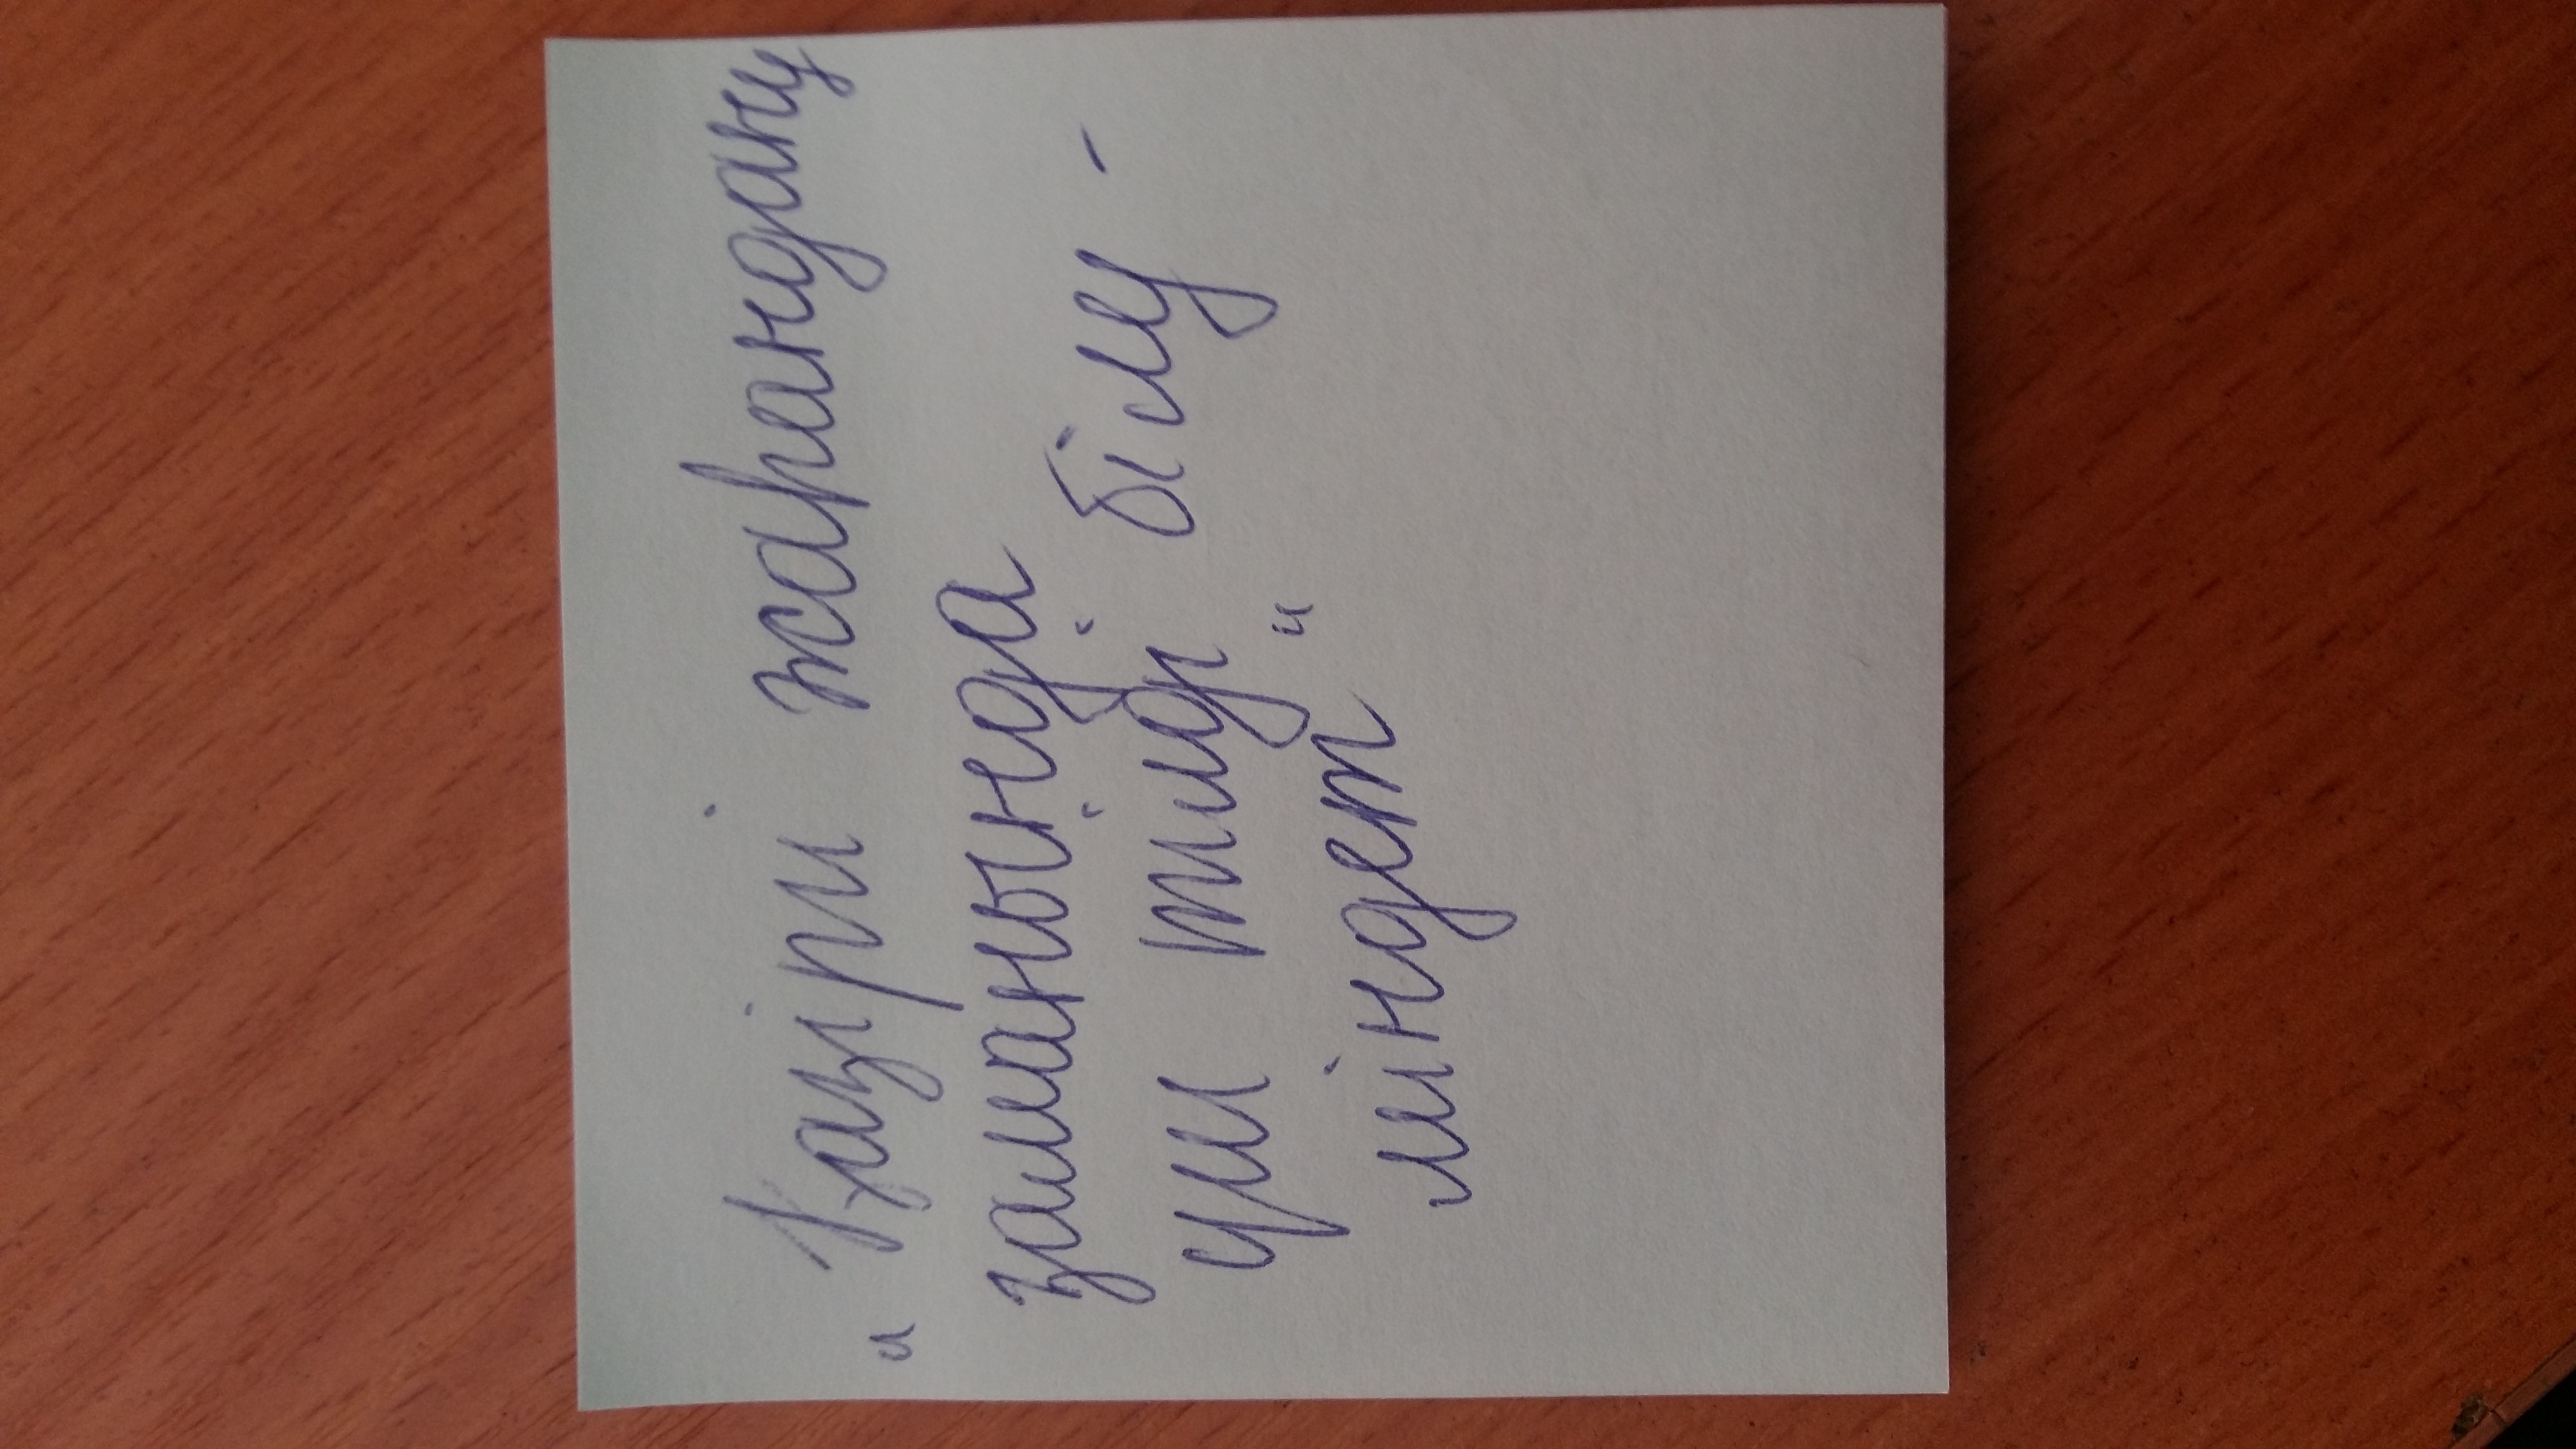 "Қазіргі жаһандану
заманында
үш тілді білу -
міндет"